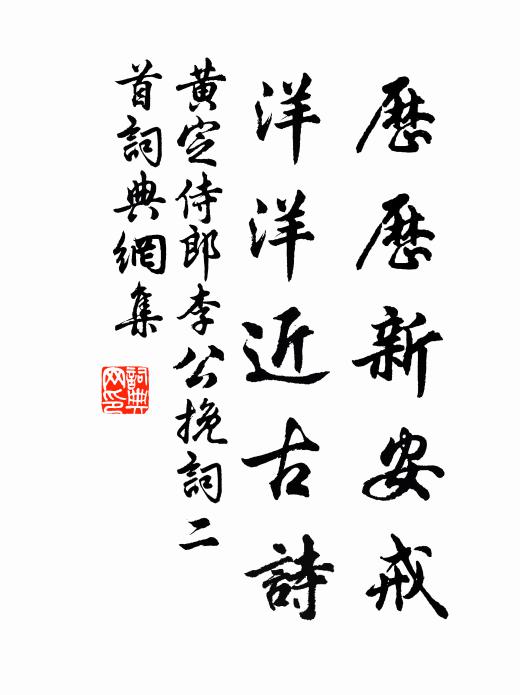 歷歷新安戒
洋洋近古詩
黄定侍郎李公挽詞二
首詞典網集
詞典
网印